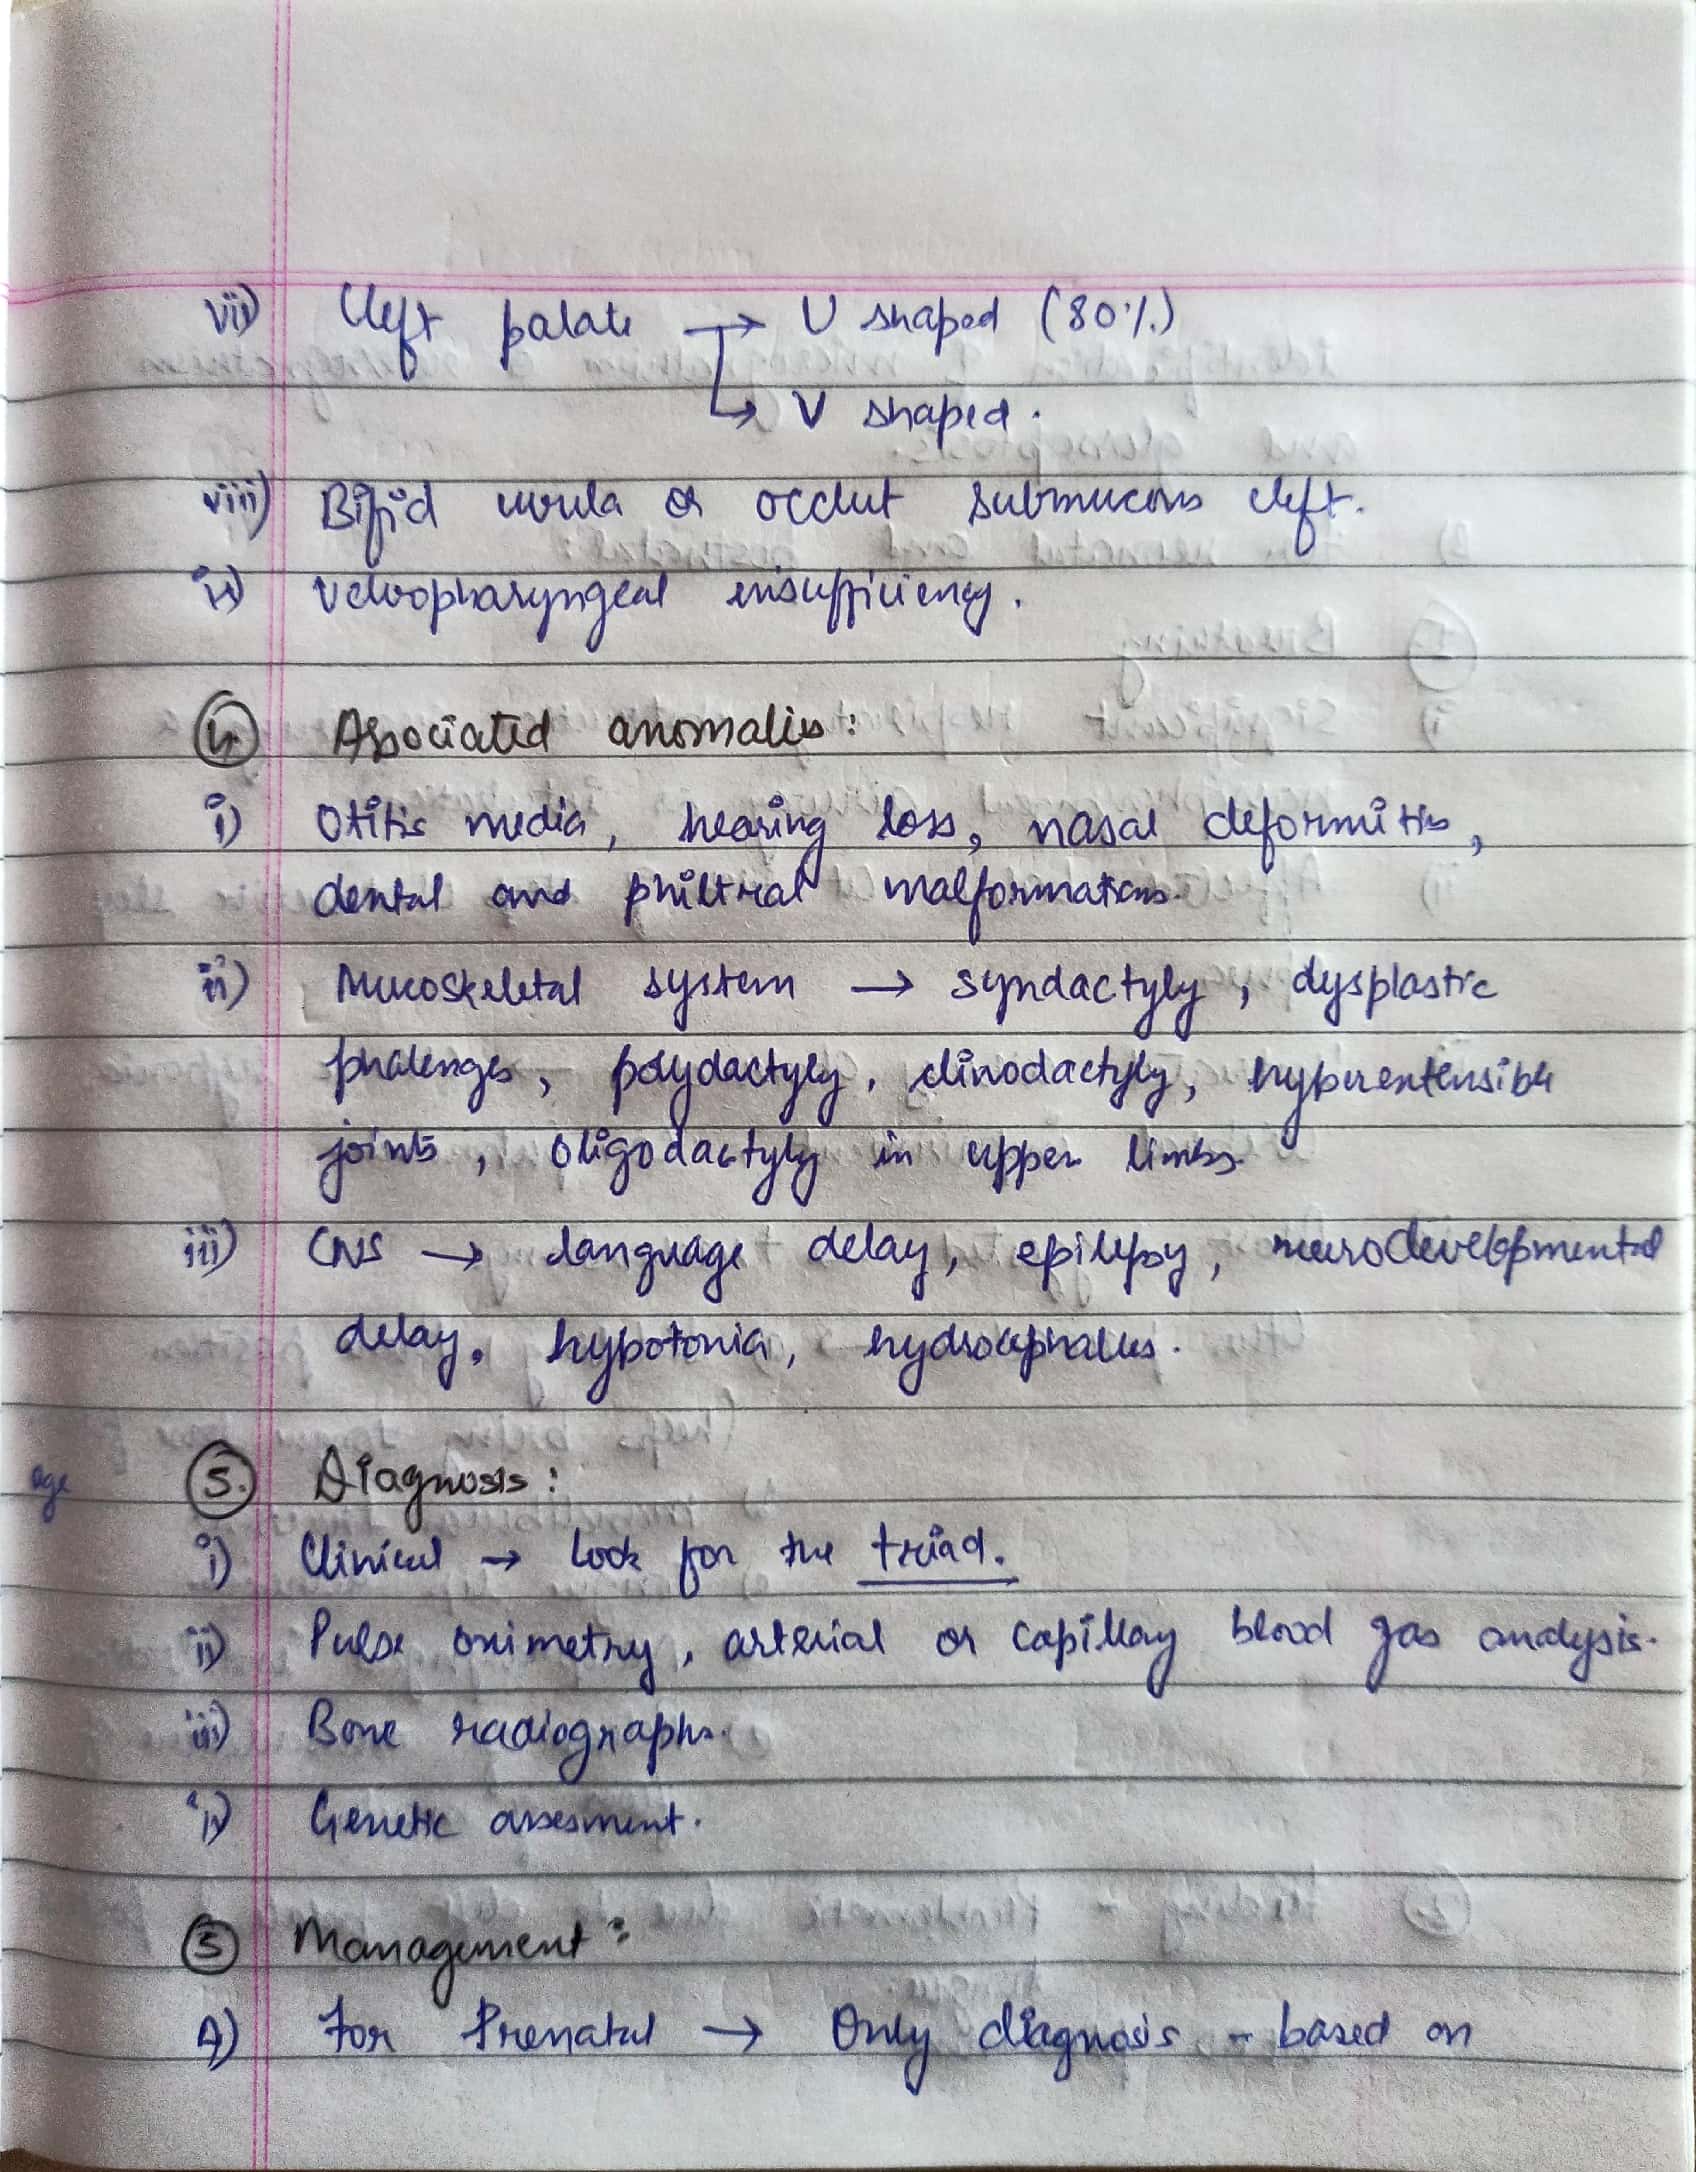 vii) Cleft palate → U shaped (80%)
↳ V shaped.
viii) Bifid uvula or occlut submucous cleft.
ix) Velvopharyngeal insufficiency.
4. Associated anomalies:
i) Otitis media, hearing loss, nasal deformities,
dental and philtral malformations.
ii) Mucoskeletal system → syndactyly, dysplastic
phalenges, polydactyly, clinodactyly, hyperextensible
joints, oligodactyly in upper limbs.
iii) CNS → language delay, epilepsy, neurodevelopmental
delay, hypotonia, hydrocephalus.
age
5. Diagnosis:
i) Clinical → look for the triad.
ii) Pulse oximetry, arterial or capillary blood gas analysis.
iii) Bone radiographs.
iv) Genetic assesment.
5 Management:
A) For Prenatal → Only diagnosis - based on